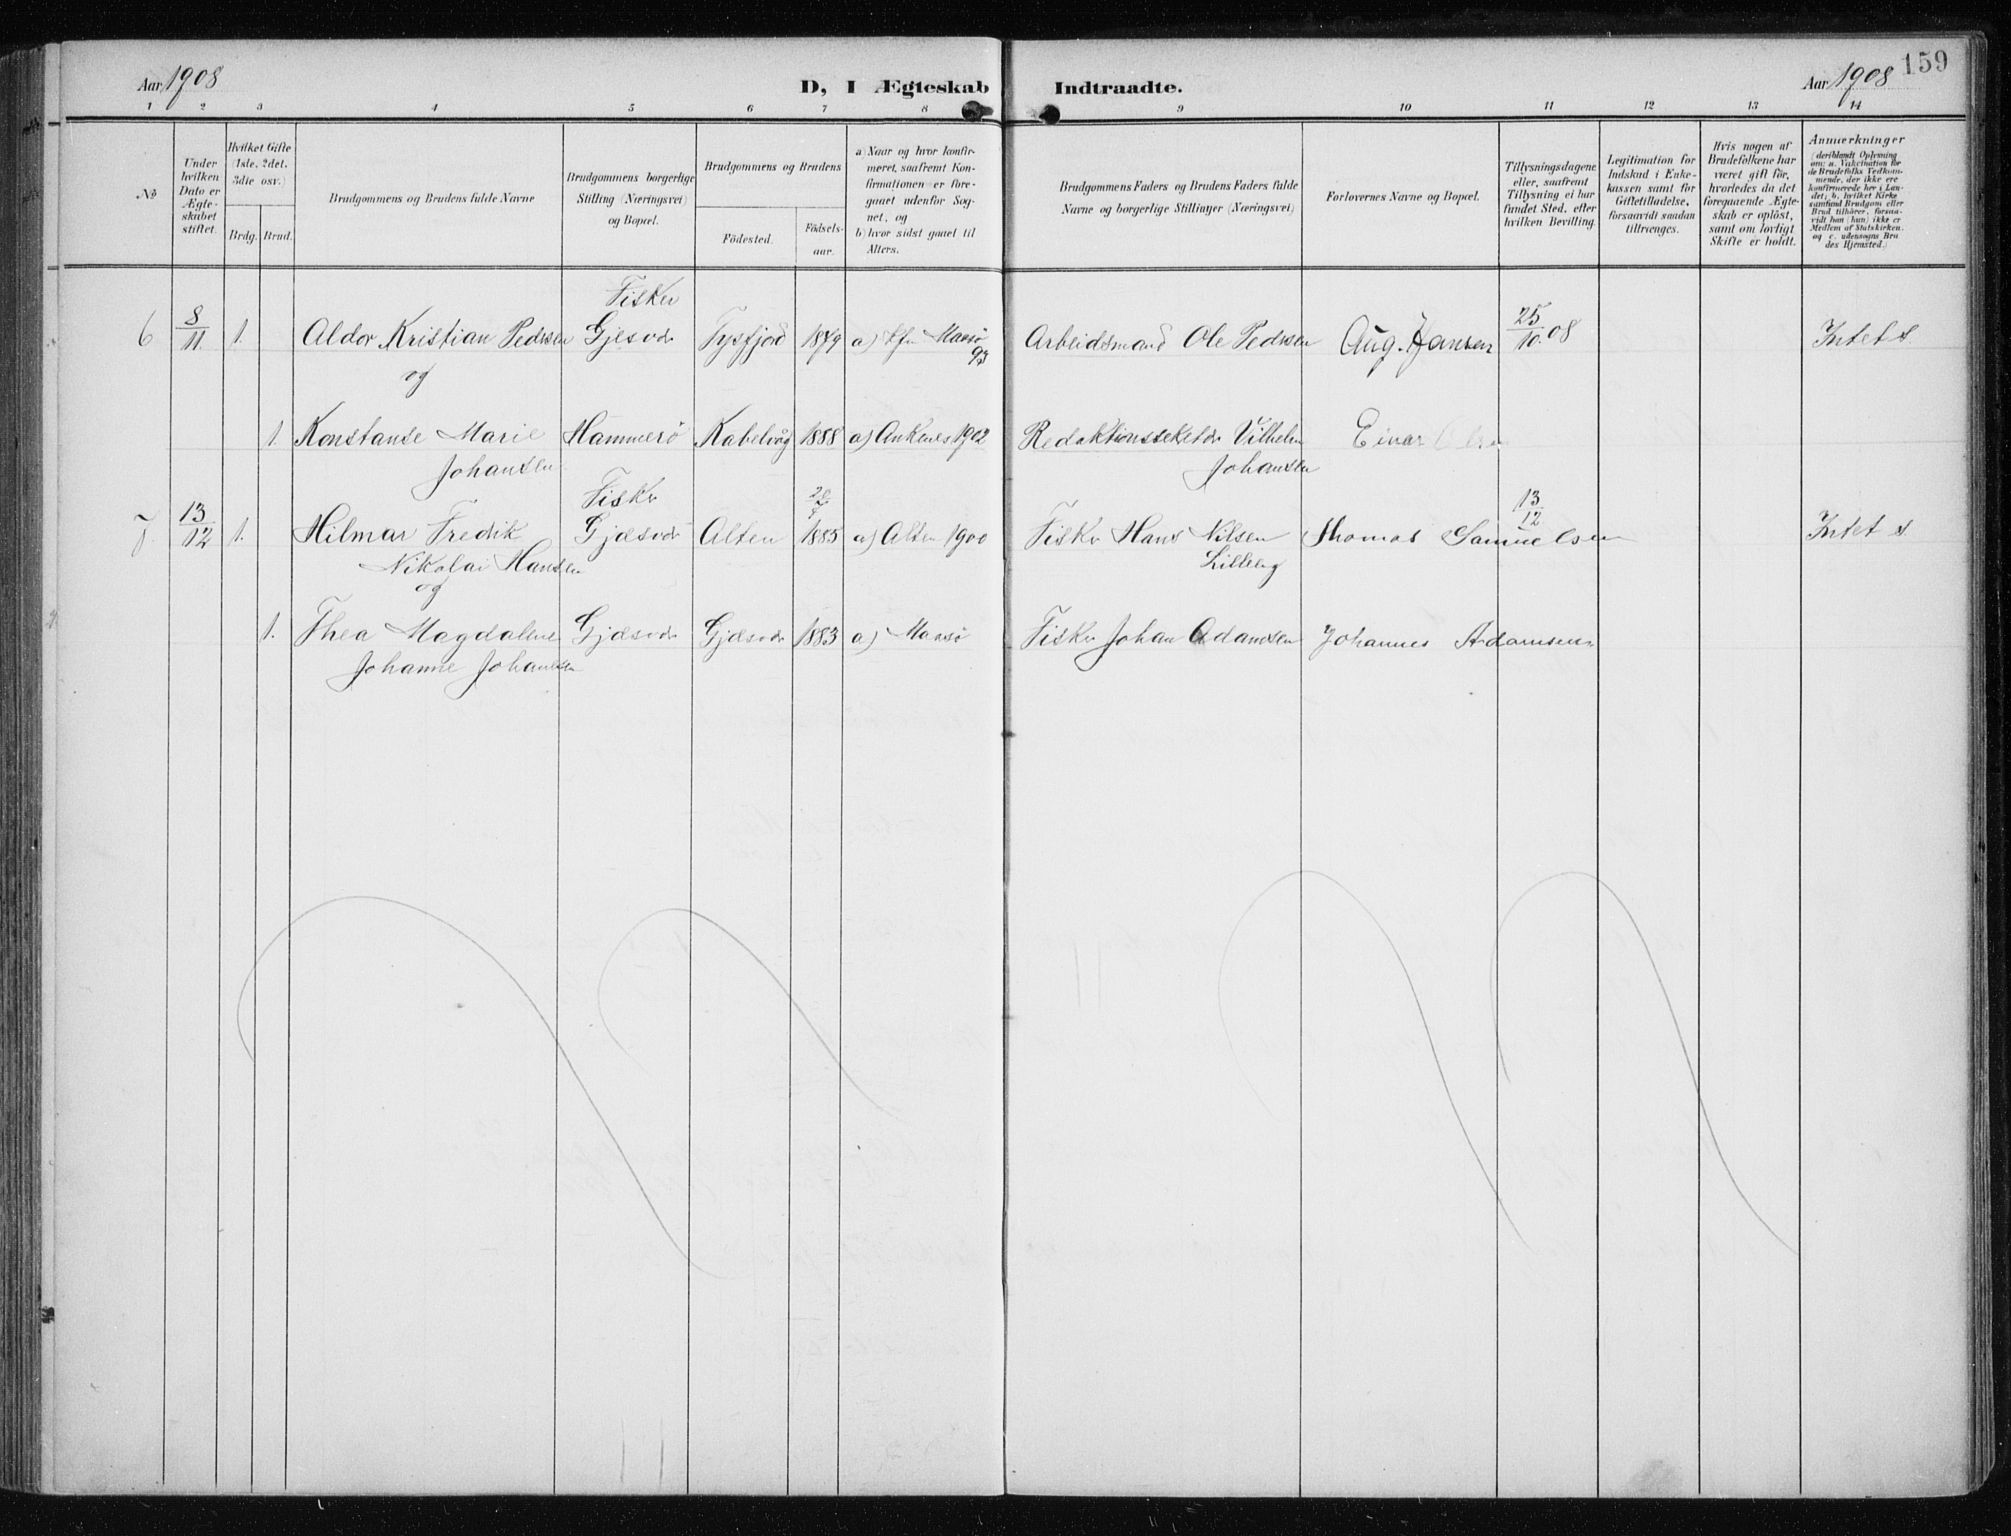 159
Aar 1908
D, I Ægteskab Indtraadte.
Aar 1908
1 2 3 4 5 6 7 8 9 10 11 12 13 14
№
Under hvilken Dato er Ægteskabet stiftet.
Hvilket Gifte (1ste, 2det, 3die osv.)
Brdg. Brud.
Brudgommens og Brudens fulde Navne
Brudgommens borgerlige Stilling (Næringsvei) og Bopæl.
Brudgommens og Brudens
Födested.
Födsels-aar.
a) Naar og hvor konfirmeret, saafremt Konfirmationen er foregaaet udenfor Sognet, og
b) hvor sidst gaaet til Alters.
Brudgommens Faders og Brudens Faders fulde Navne og borgerlige Stillinger (Næringsvei)
Forlovernes Navne og Bopæl.
Tillysningsdagene eller, saafremt Tillysning ei har fundet Sted, efter hvilken Bevilling.
Legitimation for Indskud i Enkekassen samt for Giftetilladelse, forsaavidt saadan tiltrænges.
Hvis nogen af Brudefolkene har været gift før, hvorledes da det foregaaende Ægteskab er oplöst, samt om lovligt Skifte er holdt.
Anmærkninger
(deriblandt Oplysning om: a. Vakcination for de Brudefolks Vedkommende, der ikke ere konfirmerede her i Landet; b. hvilket Kirkesamfund Brudgom eller Brud tilhører, forsaavidt han (hun) ikke er Medlem af Statskirken, og c. udensogns Brudes Hjemsted.)
Fisker
6 8/11. 1. Aldor Kristian Pedrsen Gjesvdr Tysfjord 1879 a) kfn Maasö 93 Arbeidsmand Ole Pedrsen Aug. Hansen 25/10.08 Intet s.
og
1. Konstanse Marie Hammerö Kabelvåg 1888 a) Ankenes 1902 Redaktionssekretær Vilhelm Einar
Johansen Johansen
Fiskr 20/7 13/12
7. 13/12 1. Hilmar Fredik Gjæsvdr Alten 1885 a) Alten 1900 Fiskr Hans Nilsen Thomas Samuelsen Intet s.
Nikolai Hansen
og
1. Thea Magdalene Gjæsvdr Gjæsvdr 1883 a) Maasö Fiskr Johan Adamsen Johannes Adamsen
Johanne Johansen